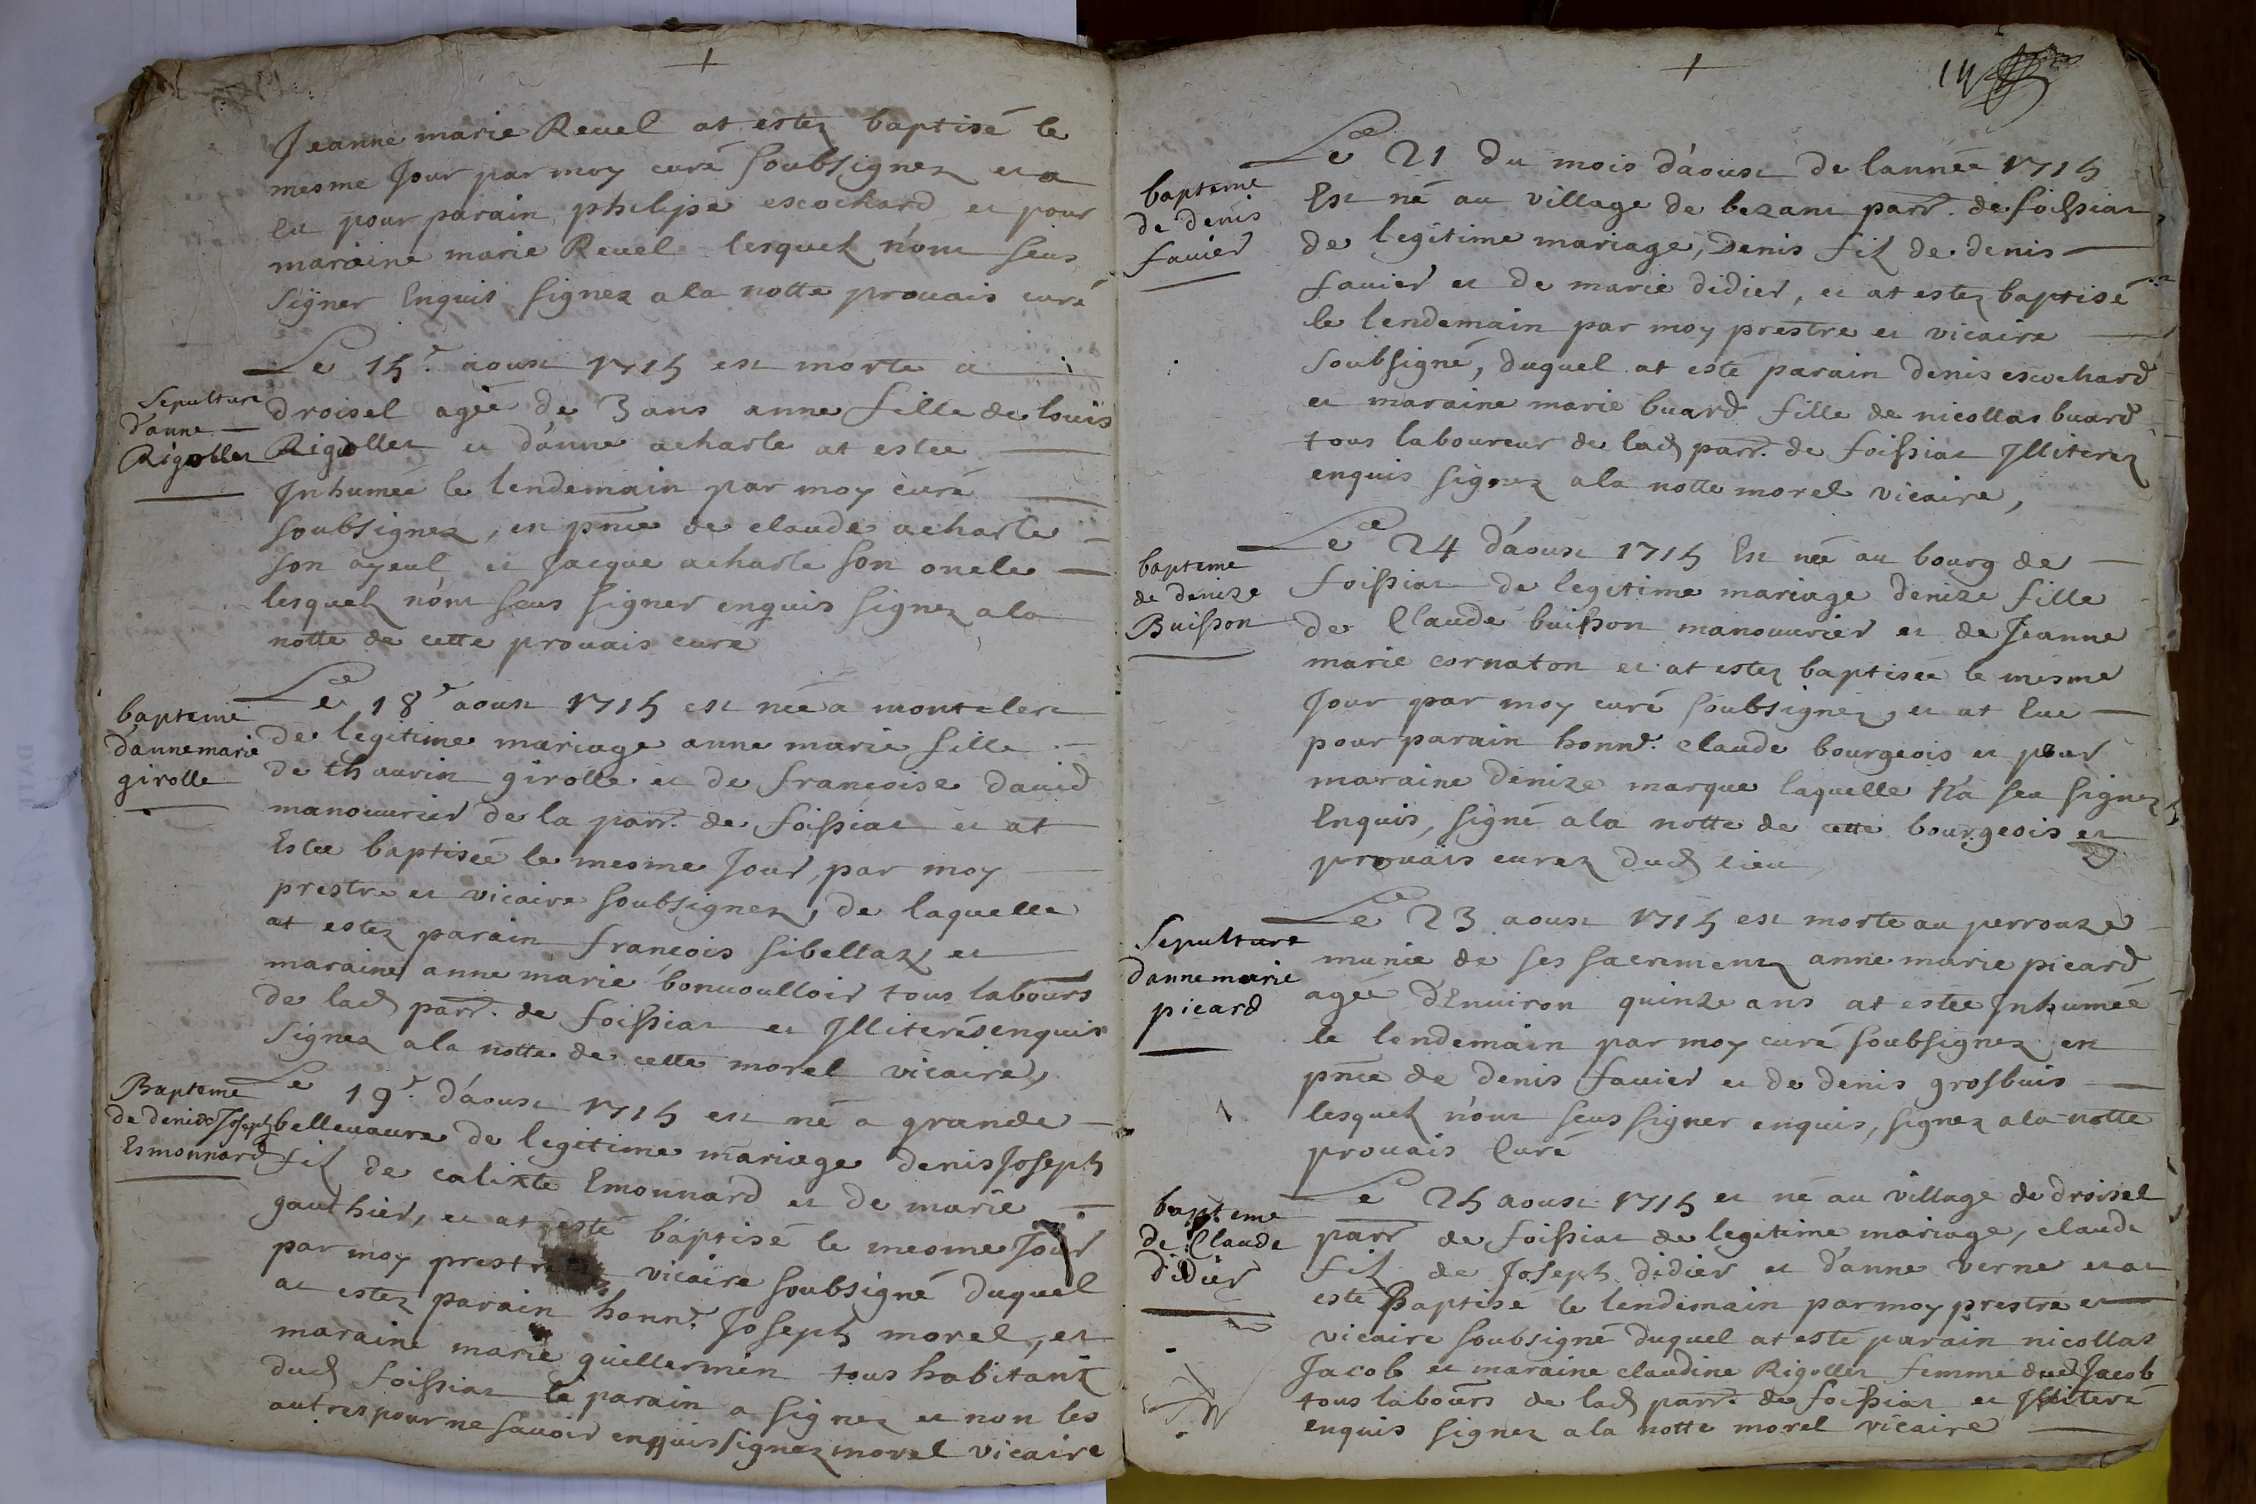 Jeanne marie Reuel at estez baptisé le
mesme Jour par moy curé soubsignez et a
Eu pour parain philipe escochard et pour
maraine marie Reuel lesquelz n'ont seus
signer Enquis signez a la notte prouais curé
Sepulture
d'anne
Rigollet
Le 15e aoust 1715 est morte a
droisel agée de 3 ans anne fille de louis
Rigollet et d'anne acharle at estee
Inhumée le lendemain par moy curé
soubsignez, en pnce de claude acharle
son ayeul et Jacque acharle son oncle
lesquelz n'ont seus signer enquis signez a la
notte de cette prouais curé
bapteme
d'anne marie
girolle
Ce 18e aoust 1715 est née a montclerc
de legitime mariage anne marie fille
de thaurin girolle et de francoise dauid
manouurier de la parr. de foissiat et at
Estée baptisée le mesme Jour, par moy
prestre et vicaire soubsignez, de laquelle
at estez parain francois sibellaz et
maraine anne marie bonuoulloir tous labours
de lad parr. de foissiat et Illiterés enquis
signez a la notte de cette morel vicaire,
Bapteme
de denis Joseph
Esmonnard
Le 19e d'aoust 1715 est né a grande
belleuaure de legitime mariage denis Joseph
filz de calixte Emonnard et de marie
gauthier, et at esté baptisé le mesme Jour
par moy prestre vicaire soubsigné duquel
at estez parain honn. Joseph morel, et
maraine marie guillermin tous habitantz
dud foissiat le parain a signez et non les
autres pour ne sauoir enquis signez morel vicaire
14
bapteme
de denis
fauier
Ce 21 du mois d'aoust de lannée 1715
Est né au village de bezant parr. de foissiat
de legitime mariage, Denis filz de denis
fauier et de marie didier, et at estez baptisé
le lendemain par moy prestre et vicaire
soubsigné, duquel at esté parain denis escochard
et maraine marie buard fille de nicollas buard
tous laboureur de lad parr. de foissiat Illiterez
enquis signez a la notte morel vicaire,
bapteme
de denize
Buisson
Ce 24 d'aoust 1715 Est née au bourg de
foissiat de legitime mariage denize fille
de Claude buisson manouurier et de Jeanne
marie cornaton et at estez baptisée le mesme
Jour par moy curé soubsignez, et at Eue
pour parain honn. claude bourgeois et pour
maraine denize marque laquelle n'a seu signez
Enquis, signé a la notte de cette bourgeois et
prouais curez dud lieu
Sepulture
d'anne marie
picard
Ce 23 aoust 1715 est morte au perrouze
munie de ses sacrementz anne marie picard
agée d'Enuiron quinze ans at estée Inhumée
le lendemain par moy curé soubsignez en
pnce de denis fauier et de denis grosbuis
lesquelz n'ont seus signer enquis, signez a la notte
prouais Curé
bapteme
de Claude
didier
Le 25 aoust 1715 et né au village de droisel
parr de foissiat de legitime mariage, claude
filz de Joseph didier et d'anne verne et at
esté Baptisé le lendemain par moy prestre et
vicaire soubsigné duquel at esté parain nicollas
Jacob et maraine claudine Rigollet femme dud Jacob
tous labours de lad parr. de foissiat et Illiteré
enquis signez a la notte morel vicaire